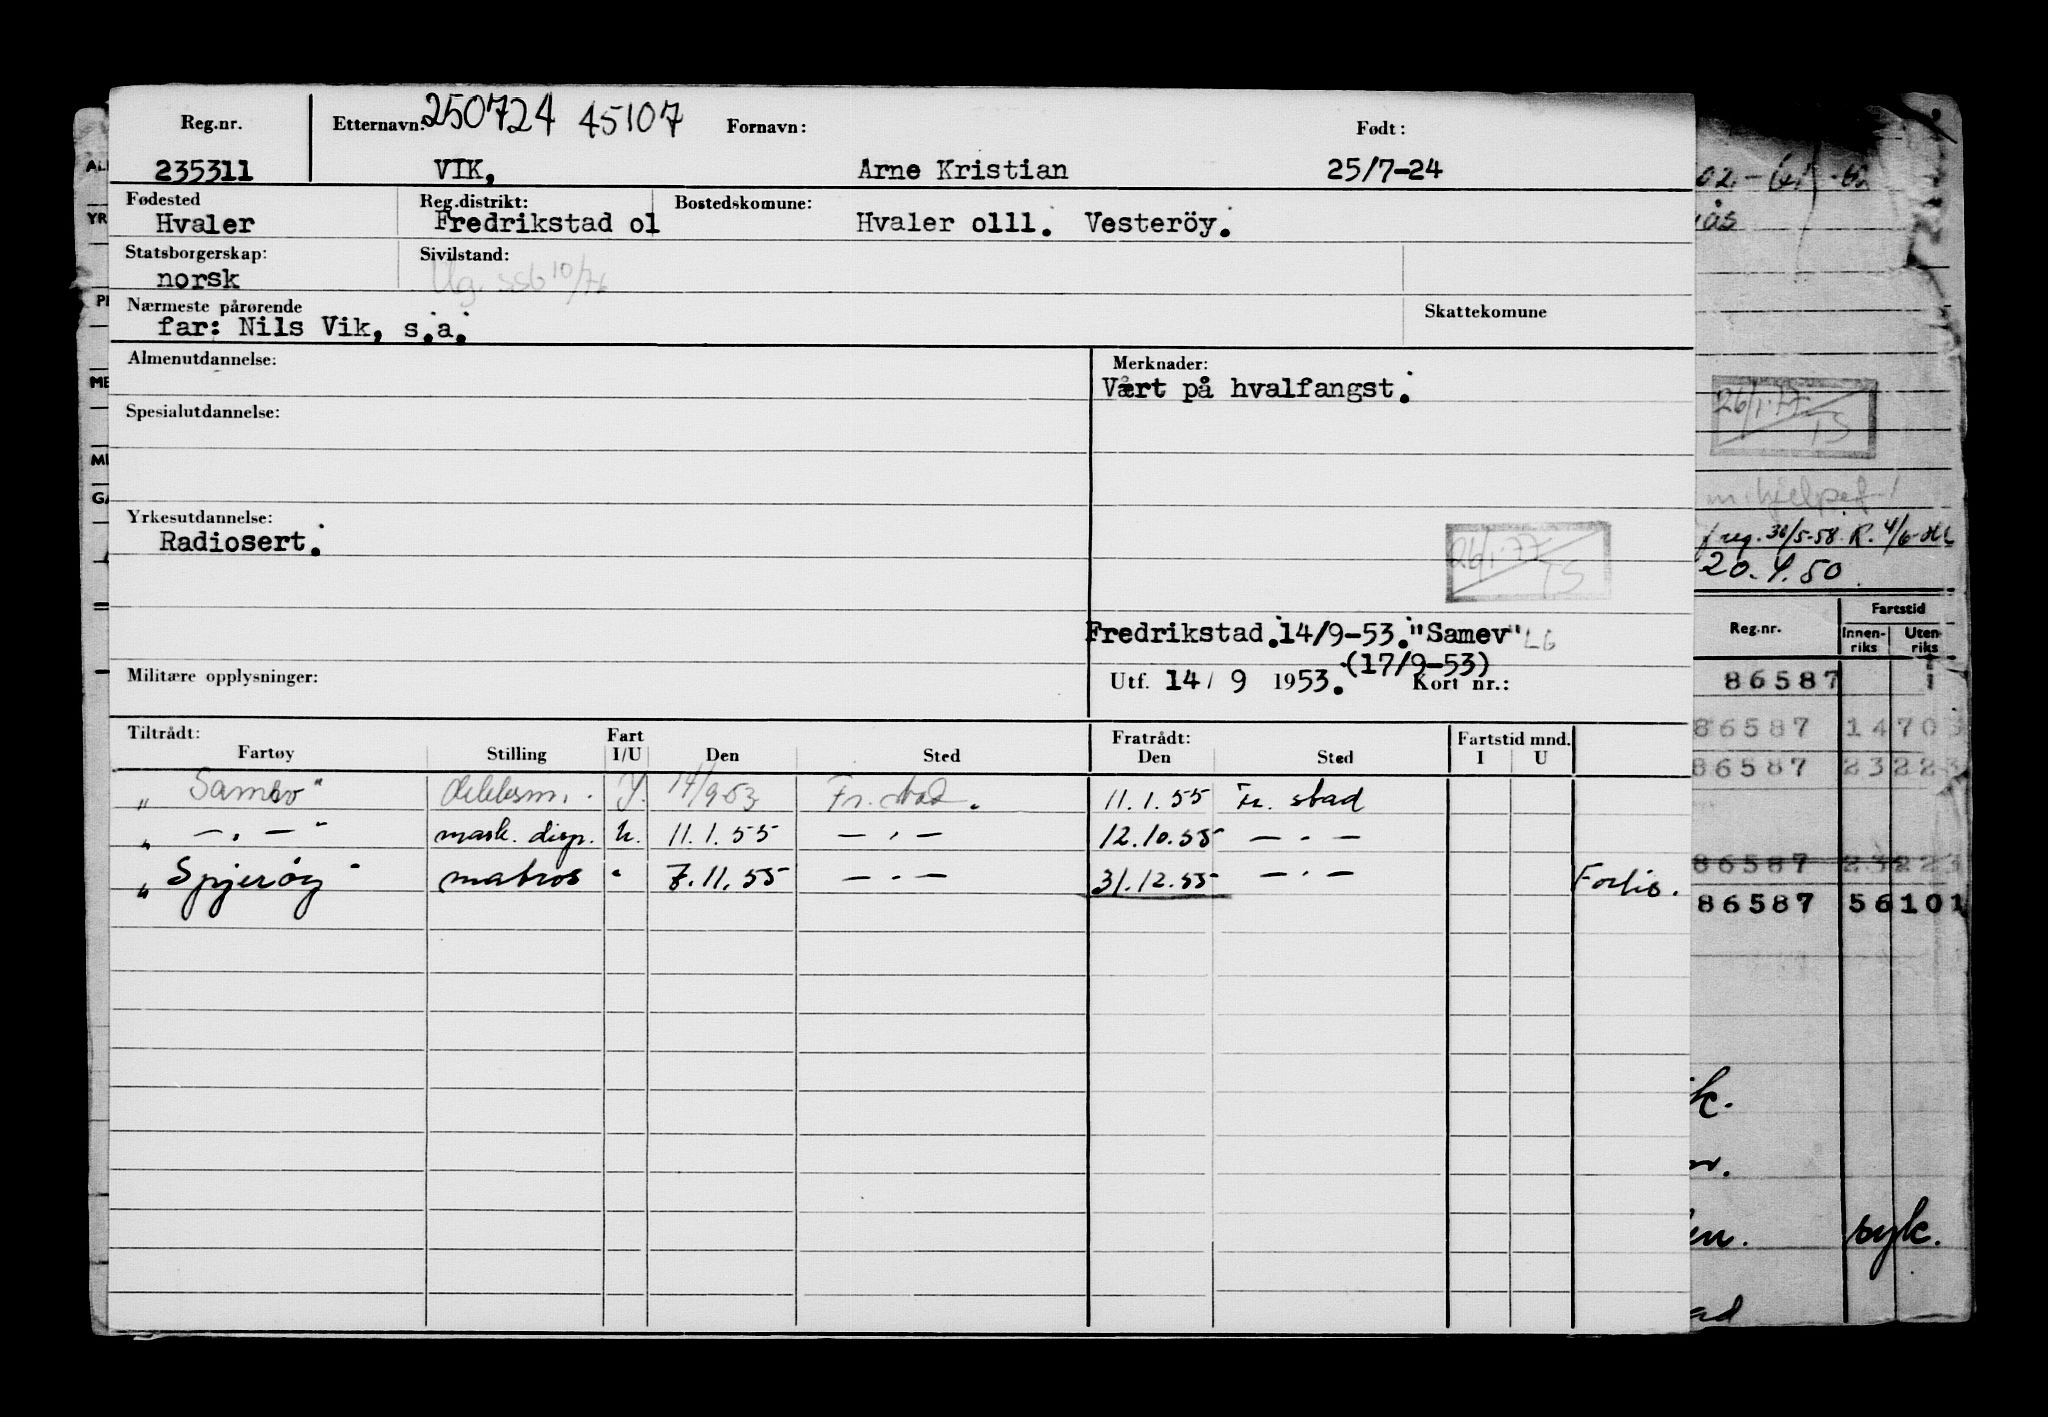 250724 45107
Reg.nr. Etternavn: Fornavn: Født:
235311 VIK, Arne Kristian 25/7-24
Fødested Reg.distrikt: Bostedskomune:
Hvaler Fredrikstad ol Hvaler olll. Vesteröy.
Statsborgerskap: Sivilstand:
norsk
Nærmeste pårørende Skattekomune
far: Nils Vik, s.a.
Almenutdannelse: Merknader:
Vært på hvalfangst.
Spesialutdannelse:
Yrkesutdannelse:
Radiosert.
26/1-77
TS
Fredrikstad.14/9-53."Samev"
(17/9-53)
Militære opplysninger: Utf. 14 / 9 1953. Kort nr.:
Tiltrådt: Fart Fratrådt: Fartstid mnd.
Fartøy Stilling I/U Den Sted Den Sted I U
14/9-53 Fr.stad. 11.1.55 Fr. stad
" — . — " mask. disp. 11.1.55 — . — 12.10.55 — . —
" Spjerøy " matros " 7.11.55 — . — 31.12.55 — . —
26/1-77
TS
m. hjelpef.
reg. 30/5-58. R. 4/6-
20.4.50.
Reg.nr. Fartstid
Innen-riks Uten-riks
86587 1
86587 14703
86587
86587
86587 56101
syk.